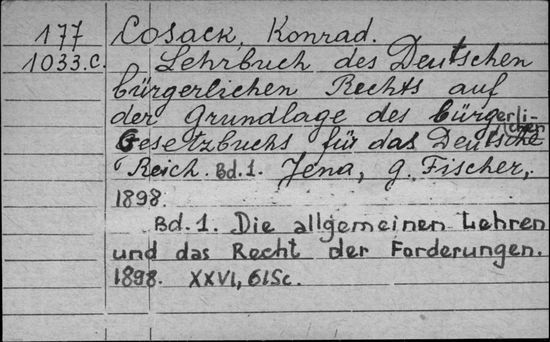 177 Cosack, Konrad.
1033.c. Lehrbuch des Deutschen
bürgerlichen Rechts auf
der Grundlage des bürgerli-
chen
Gesetzbuchs für das Deutsche
Reich. Bd.1. Jena, G. Fischer,
1898.
Bd.1. Die allgemeinen Lehren
und das Recht der Forderungen.
1898. XXVI, 61Sc.